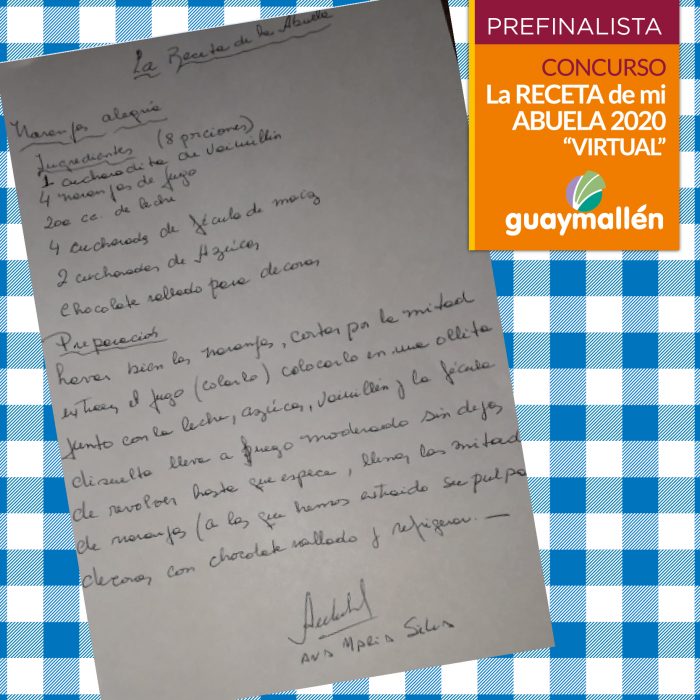 PREFINALISTA
CONCURSO
La RECETA de mi
ABUELA 2020
“VIRTUAL”
guaymallén
La Receta de la Abuela
Naranjas alegría
Ingredientes (8 porciones)
1 cucharadita de vainillin
4 naranjas de jugo
200 cc. de leche
4 cucharadas de fécula de maiz
2 cucharadas de Azúcar
Chocolate rallado para decorar
Preparación
Lavar bien las naranjas, cortar por la mitad
extraer el jugo (colarlo) colocarlo en una ollita
junto con la leche, azúcar, vainillin y la fécula
disuelta llevar a fuego moderado sin dejar
de revolver hasta que espece, llenar las mitad
de naranjas (a las que hemos extraido su pulpa
decorar con chocolate rallado y refrigerar.—
ANA MARIA